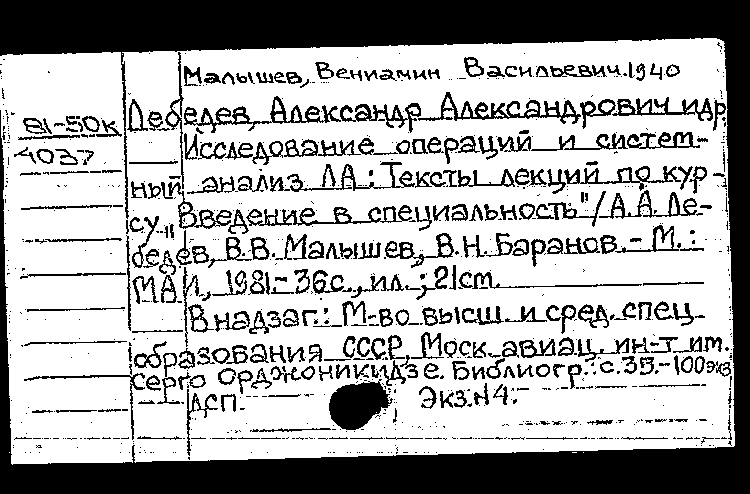 Малышев, Вениамин Васильевич. 1940
81-50к Лебедев, Александр Александрович и др
4037 Исследование операций и систем-
ный анализ ЛА: Тексты лекций по кур-
су „Введение в специальность"/А.А. Ле-
бедев, В.В. Малышев, В.Н. Баранов. - М.:
МАИ, 1981.- 36с., ил.; 21см.
В надзаг.: М-во высш. и сред. спец.
образования СССР, Моск. авиац. ин-т им.
Серго Орджоникидзе. Библиогр.: с.35.-100экз
ДСП. Экз.№4.